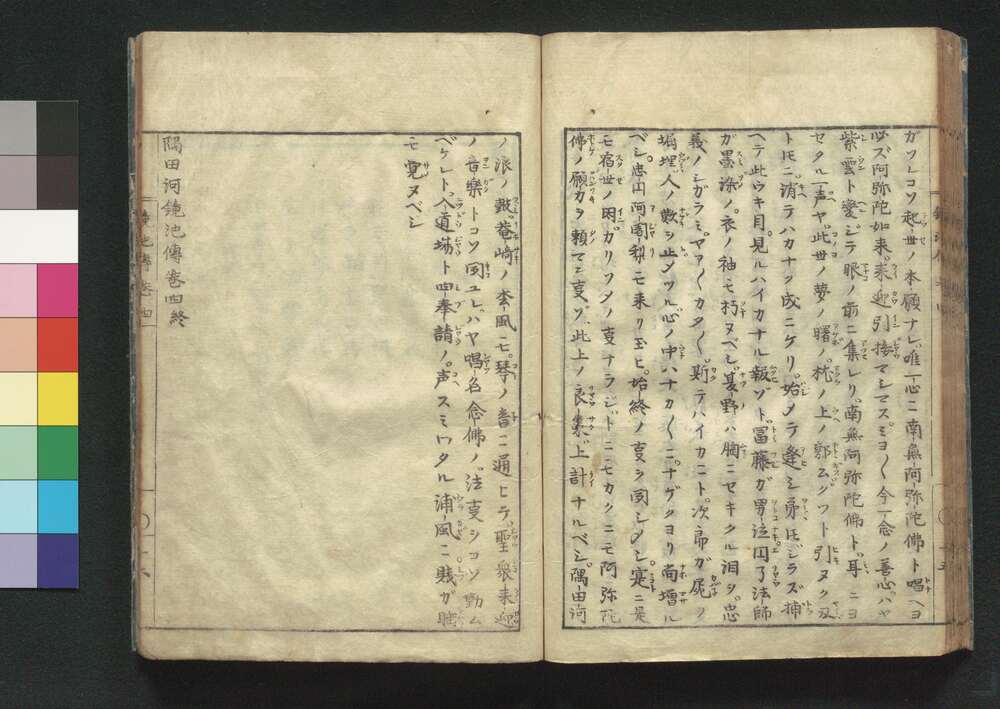 ガツレコソ起世ノ本願ナレ唯一心ニ南無阿弥陀佛ト唱ヘヨ
必ズ阿弥陀如来。来迎引接マシマスミヨ〱今一念ノ善心ハヤ
紫雲ト変ジテ眼ノ前ニ集レリ。南無阿弥陀佛ト。耳ニヨ
セクル一声ヤ。此世ノ夢ノ曙ノ。枕ノ上ノ郭ムグツト引ヌク刄
トモニ消テハカナク成ニケリ。始メテ逢シ弟トモシラズ挿
ヘテ此ウキ目。見ルハイカナル報ゾト。冨藤ガ男泣円了法師
ガ墨染ノ。衣ノ袖モ朽ヌベシ。夏野ハ胸ニセキクル泪ヲ。忠
義ノシガラミ。マア〱カタ〱斯テハイカニト。次郎ガ屍ノ
堀埋人ノ歎ヲ止メツル心ノ中ハナカ〱ニ。ナゲクヨリ尚増ル
ベシ。忠円阿闍梨モ来リ玉ヒ。始終ノ叓ヲ聞シメシ。寔ニ是
モ宿世ノ因。カリソメノ叓ナラジ。トニモカクニモ阿弥陀
佛ノ願力ヲ頼マニ叓ゾ。此上ノ良策上計ナルベシ。隅田河
ノ浪ノ鼓。菴崎ノ松風モ。琴ノ音ニ通ヒテ。聖衆来迎
ノ音樂トコソ聞ユレ。ハヤ唱名念佛ノ。法叓シコソ勤ム
ベケレト。入道場ト四奉請ノ。声スミワタル浦風ニ賎ガ眠
モ寛ヌベシ
隅田河鏡池傳巻四終
鏡池傳巻四